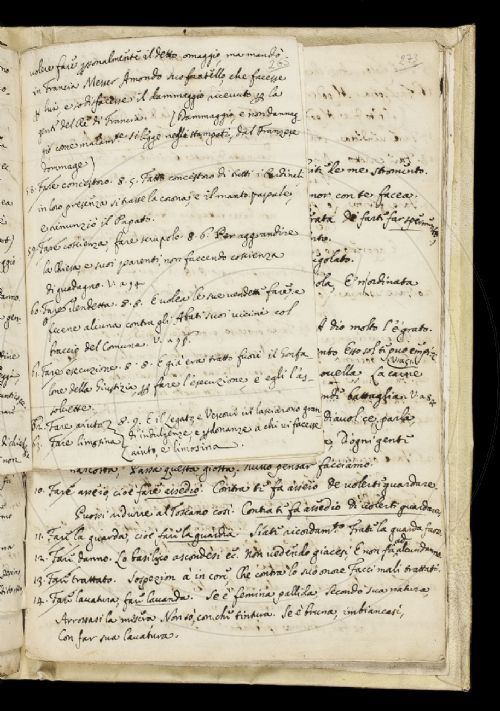 volere fare personalmente il detto omaggio, ma mandò
in Francia Messer Amondo suo fratello che facesse
per lui e sodisfacesse il dammaggio ricevuto per la
gente del Re di Francia. (Dammaggio, e non dannag
gio come malamte si legge negli stampati, dal Franzese
dommage)
58. Fare concestoro. 8. 5. Fatto concestoro di tutti i Cardinali
in loro presenza si trasse la corona, e il manto papale,
e rinunziò il Papato.
59. Fare coscienza, fare scrupolo. 8. 6. Per aggrandire
la Chiesa, e suoi parenti, non faccendo coscienza
di guadagno. V. a 14
60. Fare Vendetta. 8. 8. E volea le sue vendette fare, e
fecene alcuna contra gli Abati suoi vicini col
braccio del Comune. V. a 98.
61. Fare esecuzione. 8. 8. E già era tratto fuori il Gonfa-
lone della Giustizia, per fare l'esecuzione e egli l'as-
solvette.
62. Fare aiuto 8. 9. E il Legato, e Vescovi vi lasciarono gran
63. Fare limosina di indulgenze, e perdonanze a chi vi facesse
aiuto e limosina.
263
273
le me stromento.
onor con te facea.
di fartu far
golato.
ola, E 'nsordinata
A dio molto l'è grato.
ovella. La carne
battaglia. V. a 54
parla
D'ogni gente
nascosta, questa giostra, pensar facciamo.
10. Fare asseio, cioè fare assedio. Contra ti fa asseio de volerti guardare.
Puossi ridurre al Toscano così. Contra ti fa assedio di volerti guardare.
11. Faru la guarda, cioè faru la guardia. Siati ricordamto Fratu la guarda fare.
12. Faru danno. Lo basilisco ascondesi ec. Non vedendo giacesi, E non fa altrui danno
13. Faru trattato. Sospezion a in core, Che contra lo suo onore Facci mali trattati.
14. Faru lavatura, faru lavanda. Se è femina pallida Secondo sua natura
Arrossasi la misera Non so con che tintura. Se è bruna, imbiancasi,
Con far sua lavatura.